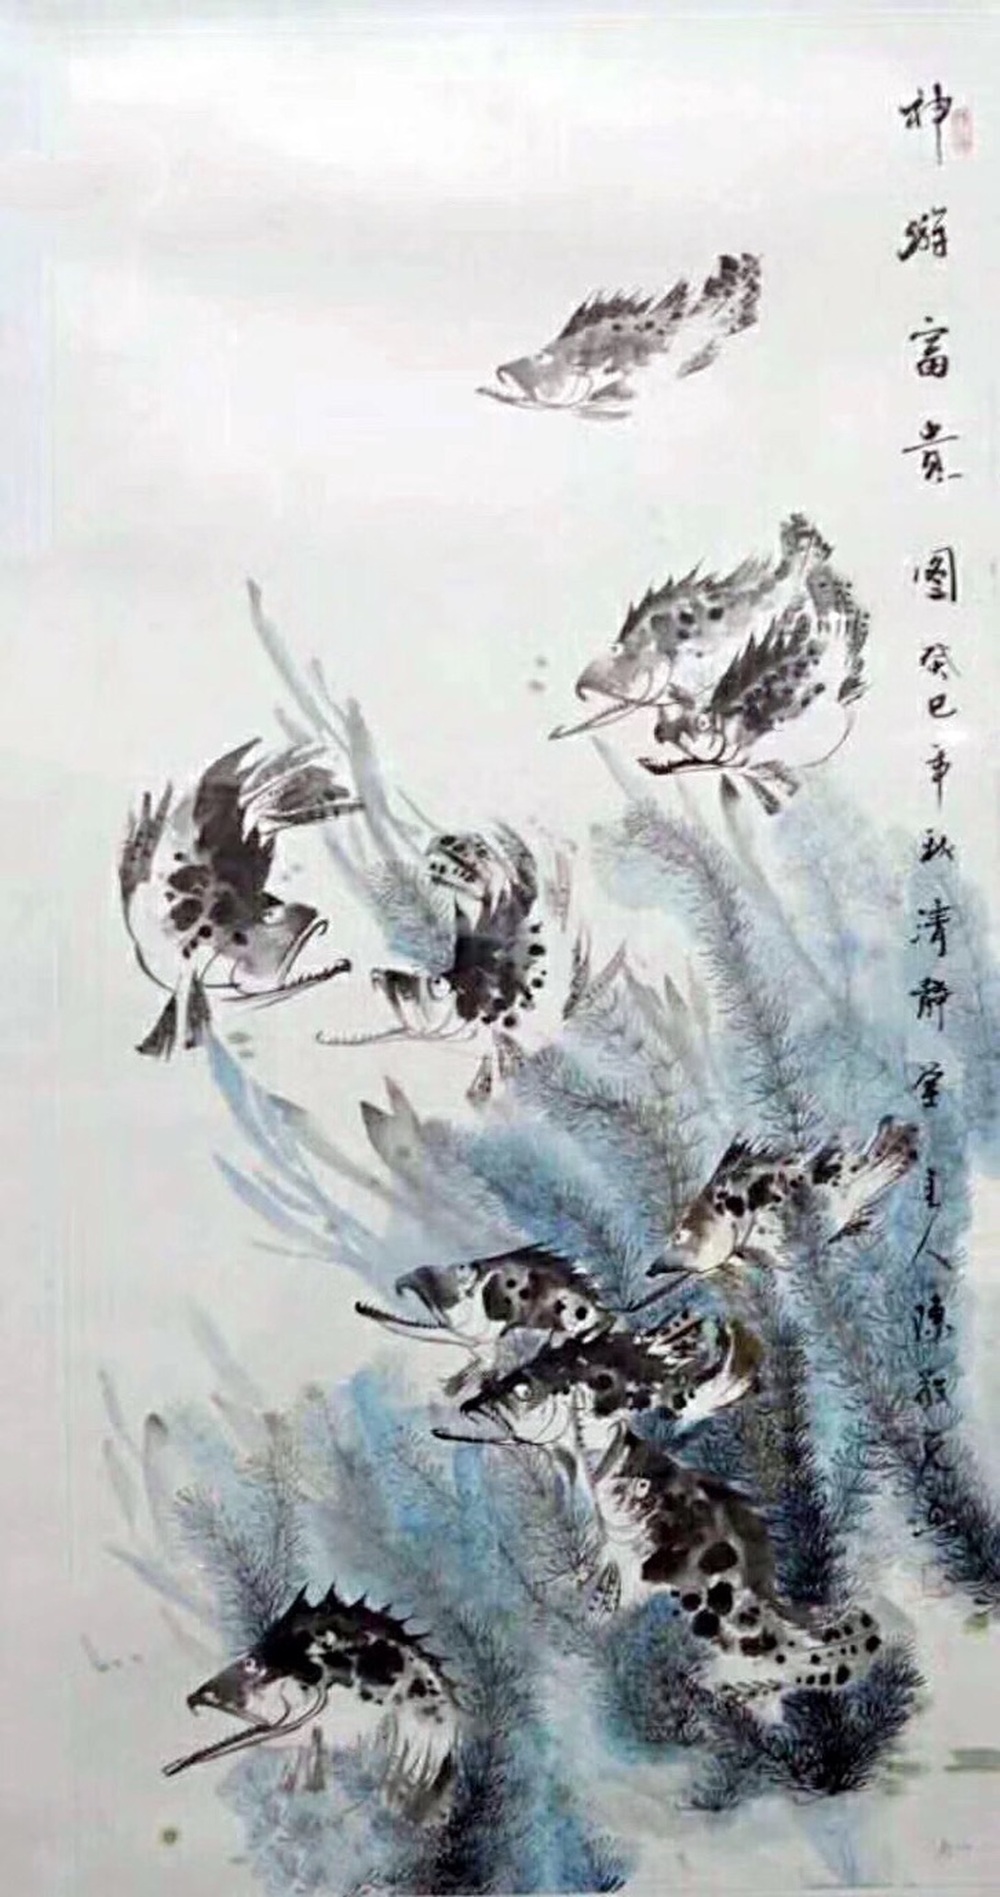 神游富贵图癸巳年秋清静堂主人陈敬友画